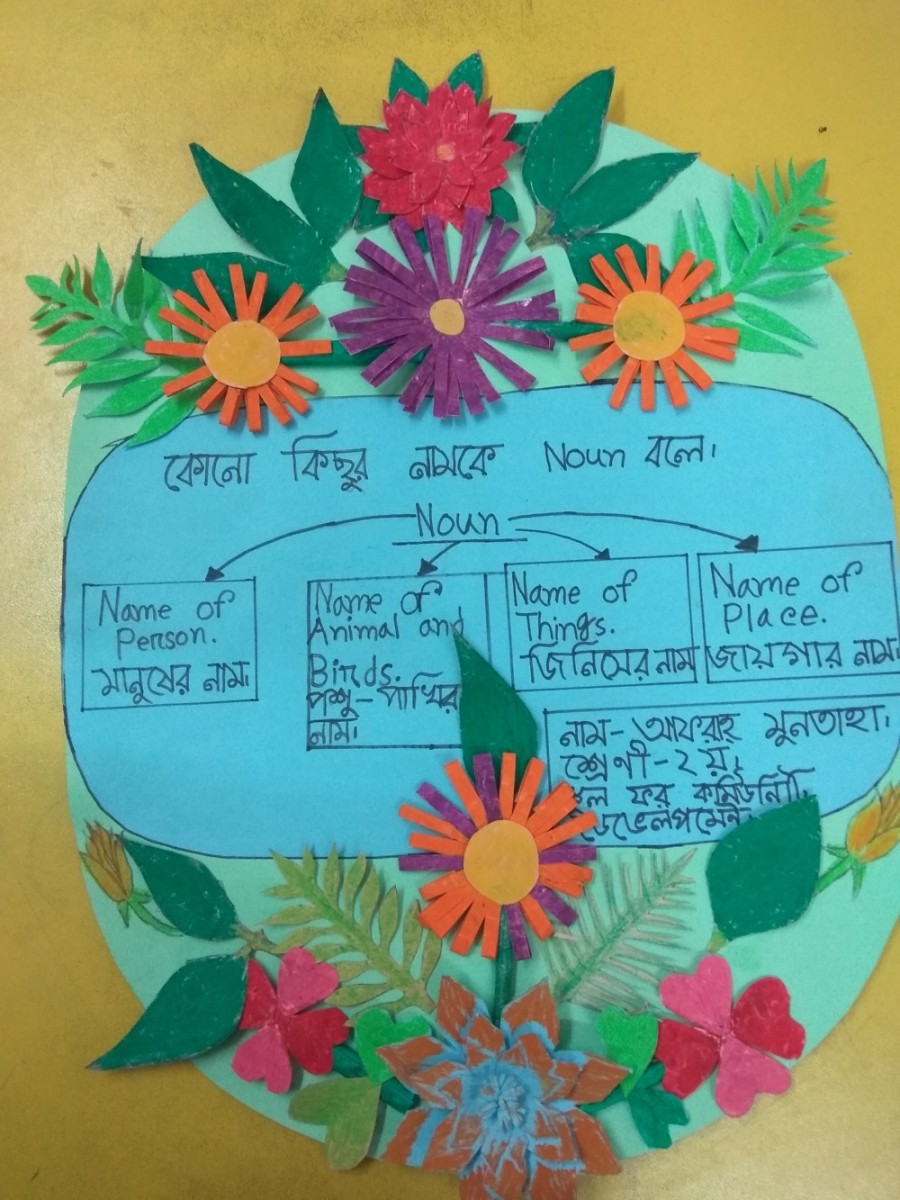 কোনো কিছুর নামকে Noun বলে।
Noun
Name of
Person.
মানুষের নাম।
Name of
Animal and
Birds.
পশু-পাখির
নাম।
Name of
Things.
জিনিসের নাম
Name of
Place.
জায়গার নাম।
নাম- আফরাহ মুনতাহা।
শ্রেণী-২য়।
ফর কমিউনিটি
ডেভেলপমেন্ট